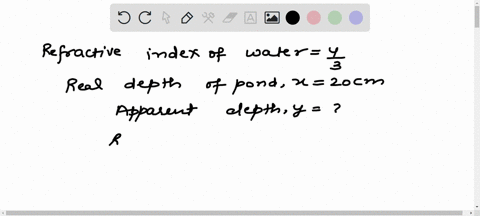 Refractive index of water = 4/3
Real depth of pond, x = 20 cm
Apparent depth, y = ?
R